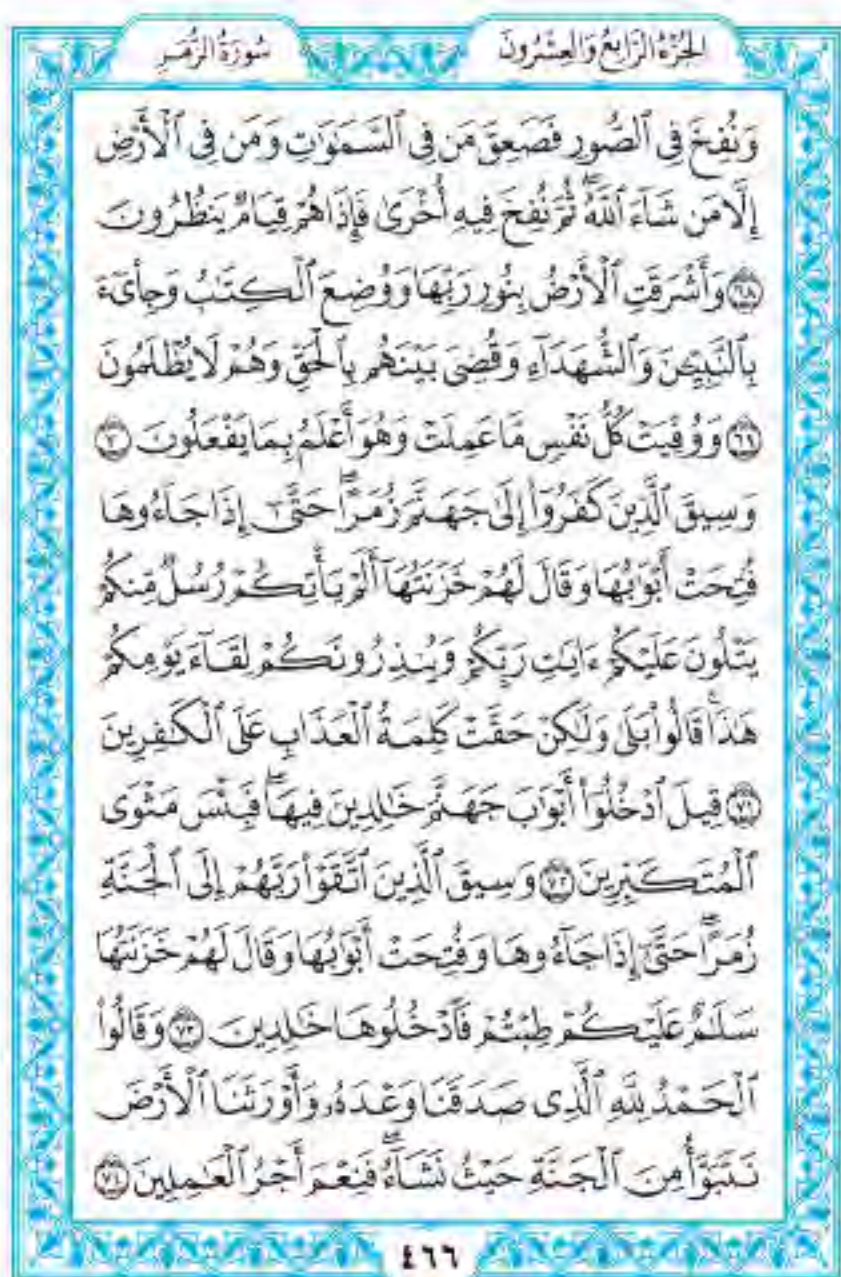 الجزء الرابع والعشرون سورة الزمر
وَنُفِخَ فِي ٱلصُّورِ فَصَعِقَ مَن فِي ٱلسَّمَٰوَٰتِ وَمَن فِي ٱلْأَرْضِ
إِلَّا مَن شَآءَ ٱللَّهُ ۖ ثُمَّ نُفِخَ فِيهِ أُخْرَىٰ فَإِذَا هُمْ قِيَامٌ يَنظُرُونَ
٦٨ وَأَشْرَقَتِ ٱلْأَرْضُ بِنُورِ رَبِّهَا وَوُضِعَ ٱلْكِتَٰبُ وَجِا۟ىٓءَ
بِٱلنَّبِيِّـۧنَ وَٱلشُّهَدَآءِ وَقُضِىَ بَيْنَهُم بِٱلْحَقِّ وَهُمْ لَا يُظْلَمُونَ
٦٩ وَوُفِّيَتْ كُلُّ نَفْسٍ مَّا عَمِلَتْ وَهُوَ أَعْلَمُ بِمَا يَفْعَلُونَ ٧٠
وَسِيقَ ٱلَّذِينَ كَفَرُوٓا۟ إِلَىٰ جَهَنَّمَ زُمَرًا ۖ حَتَّىٰٓ إِذَا جَآءُوهَا
فُتِحَتْ أَبْوَٰبُهَا وَقَالَ لَهُمْ خَزَنَتُهَآ أَلَمْ يَأْتِكُمْ رُسُلٌ مِّنكُمْ
يَتْلُونَ عَلَيْكُمْ ءَايَٰتِ رَبِّكُمْ وَيُنذِرُونَكُمْ لِقَآءَ يَوْمِكُمْ
هَٰذَا ۚ قَالُوا۟ بَلَىٰ وَلَٰكِنْ حَقَّتْ كَلِمَةُ ٱلْعَذَابِ عَلَى ٱلْكَٰفِرِينَ
٧١ قِيلَ ٱدْخُلُوٓا۟ أَبْوَٰبَ جَهَنَّمَ خَٰلِدِينَ فِيهَا ۖ فَبِئْسَ مَثْوَى
ٱلْمُتَكَبِّرِينَ ٧٢ وَسِيقَ ٱلَّذِينَ ٱتَّقَوْا۟ رَبَّهُمْ إِلَى ٱلْجَنَّةِ
زُمَرًا ۖ حَتَّىٰٓ إِذَا جَآءُوهَا وَفُتِحَتْ أَبْوَٰبُهَا وَقَالَ لَهُمْ خَزَنَتُهَا
سَلَٰمٌ عَلَيْكُمْ طِبْتُمْ فَٱدْخُلُوهَا خَٰلِدِينَ ٧٣ وَقَالُوا۟
ٱلْحَمْدُ لِلَّهِ ٱلَّذِى صَدَقَنَا وَعْدَهُۥ وَأَوْرَثَنَا ٱلْأَرْضَ
نَتَبَوَّأُ مِنَ ٱلْجَنَّةِ حَيْثُ نَشَآءُ ۖ فَنِعْمَ أَجْرُ ٱلْعَٰمِلِينَ ٧٤
٤٦٦